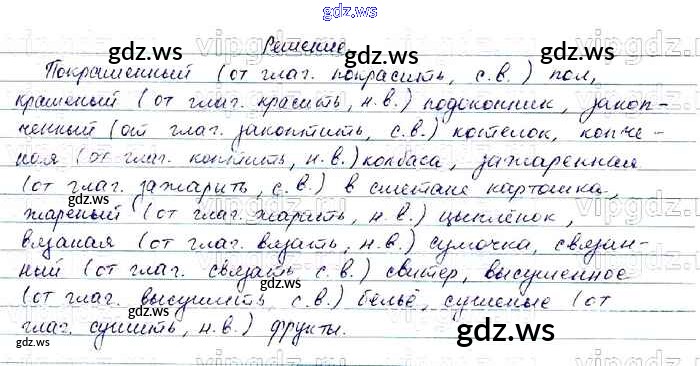 gdz.ws
Решение
Покрашенный (от глаг. покрасить, с.в.) пол,
крашеный (от глаг. красить, н.в.) подоконник, закоп-
ченный (от глаг. закоптить, с.в.) котелок, копче-
ная (от глаг. коптить, н.в.) колбаса, зажаренная
(от глаг. зажарить, с.в.) в сметане картошка,
жареный (от глаг. жарить, н.в.) цыплёнок,
вязаная (от глаг. вязать, н.в.) сумочка, связан-
ный (от глаг. связать с.в.) свитер, высушенное
(от глаг. высушить, с.в.) бельё, сушеные (от
глаг. сушить, н.в.) фрукты.
gdz.ws